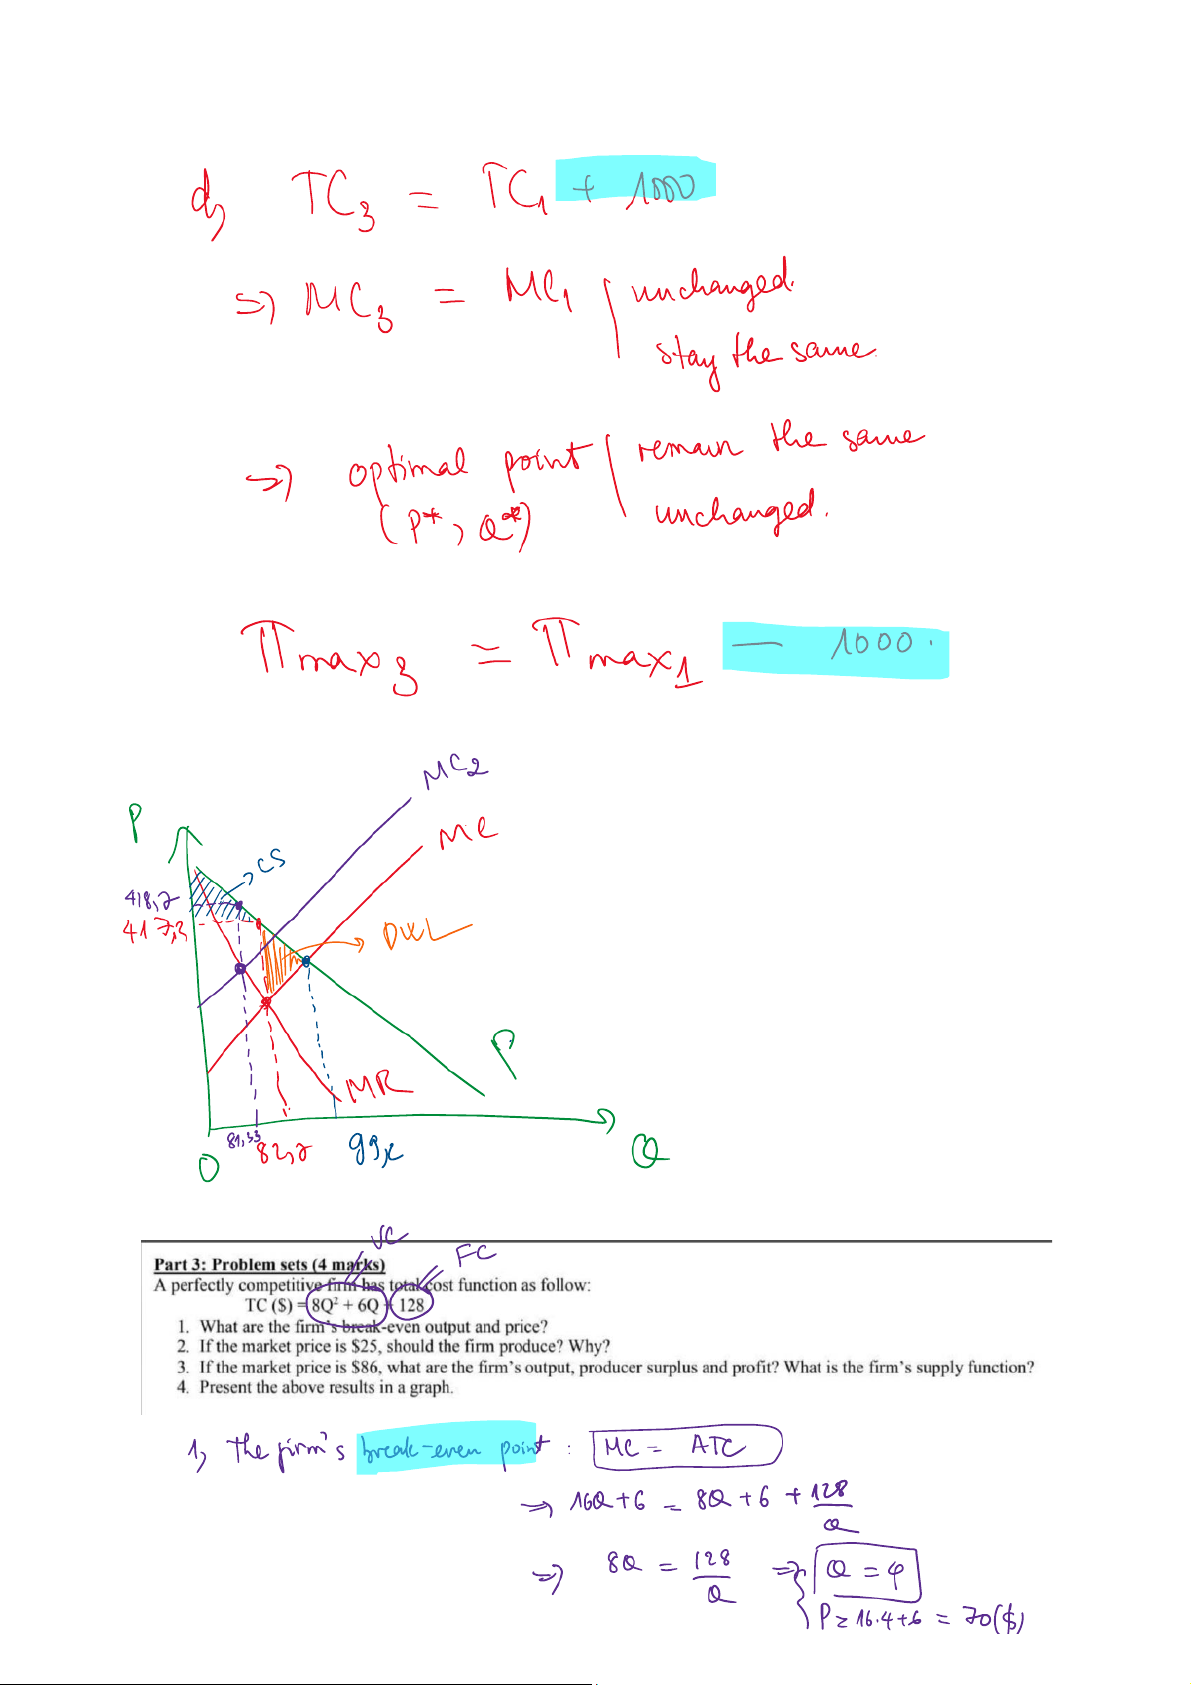 d, TC3 = TC1 + 1000
=> MC3 = MC1 unchanged.
stay the same.
=> optimal point remain the same
(P*, Q*) unchanged.
πmax3 = πmax1 — 1000.
MC2
P
MC
CS
418,7
417,3
DWL
P
MR
81,33
82,7
99,2
O
Q
VC
FC
Part 3: Problem sets (4 marks)
A perfectly competitive firm has total cost function as follow:
TC ($) = 8Q² + 6Q + 128
1. What are the firm's break-even output and price?
2. If the market price is $25, should the firm produce? Why?
3. If the market price is $86, what are the firm's output, producer surplus and profit? What is the firm's supply function?
4. Present the above results in a graph.
1, The firm's break-even point : MC = ATC
=> 16Q+6 = 8Q+6 + 128/Q
=> 8Q = 128/Q => Q = 4
P = 16.4+6 = 70($)